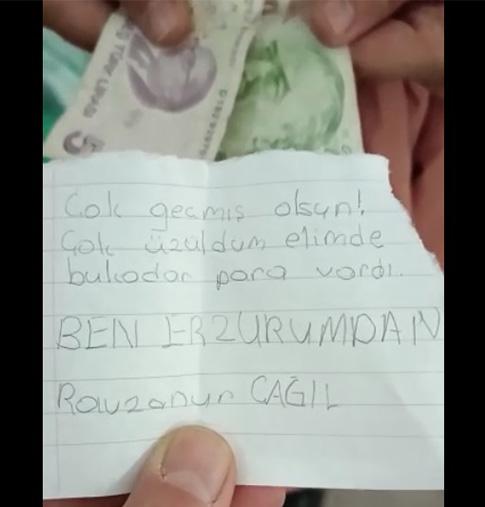 5 TÜRK LİRASI
Çok geçmiş olsun!
Çok üzüldüm elimde
bukadar para vardı.
BEN ERZURUMDAN
Ravzanur ÇAĞIL